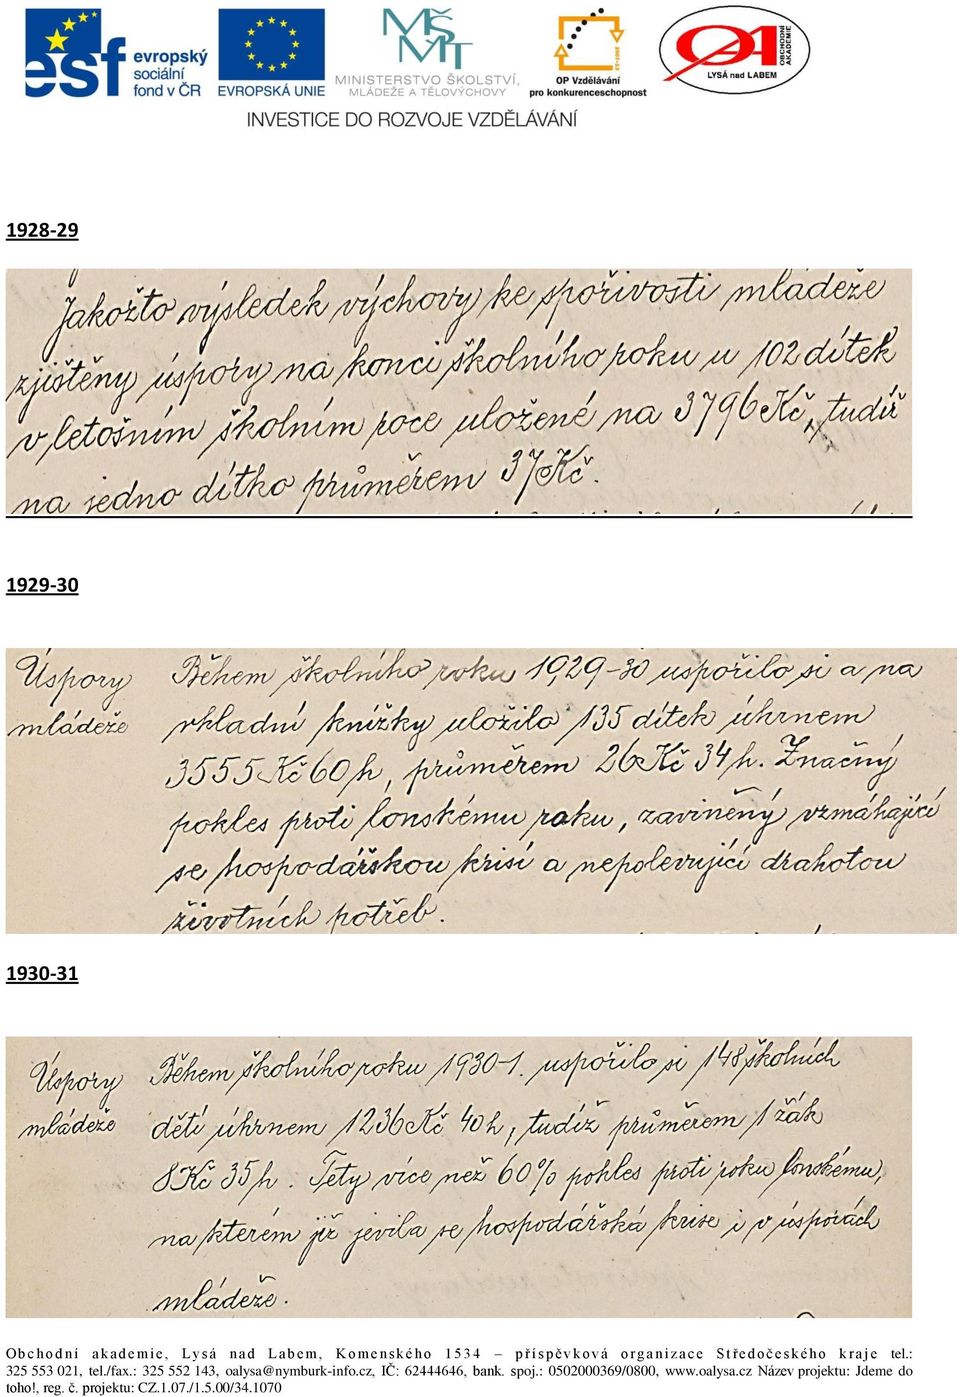 esf evropský
sociální
fond v ČR
EVROPSKÁ UNIE
MŠ
MT
MINISTERSTVO ŠKOLSTVÍ,
MLÁDEŽE A TĚLOVÝCHOVY
OP Vzdělávání
pro konkurenceschopnost
OA
OBCHODNÍ AKADEMIE
LYSÁ nad LABEM
INVESTICE DO ROZVOJE VZDĚLÁVÁNÍ
1928-29
Jakožto výsledek výchovy ke spořivosti mládeže
zjištěny úspory na konci školního roku u 102 dítek
v letošním školním roce uložené na 3796 Kč, tudíž
na jedno dítko průměrem 37 Kč.
1929-30
Úspory
mládeže
Během školního roku 1929-30 uspořilo si a na
vkladní knížky uložilo 135 dítek úhrnem
3555 Kč 60 h, průměrem 26 Kč 34 h. Značný
pokles proti lonskému roku, zaviněný vzmáhající
se hospodářskou krisí a nepolevující drahotou
životních potřeb.
1930-31
Úspory
mládeže
Během školního roku 1930-1. uspořilo si 148 školních
dětí úhrnem 1236 Kč 40 h, tudíž průměrem 1 žák
8 Kč 35 h. Tety více než 60% pokles proti roku lonskému,
na kterém již jevila se hospodářská krise i v úsporách
mládeže.
Obchodní akademie, Lysá nad Labem, Komenského 1534 – příspěvková organizace Středočeského kraje tel.:
325 553 021, tel./fax.: 325 552 143, oalysa@nymburk-info.cz, IČ: 62444646, bank. spoj.: 0502000369/0800, www.oalysa.cz Název projektu: Jdeme do
toho!, reg. č. projektu: CZ.1.07./1.5.00/34.1070